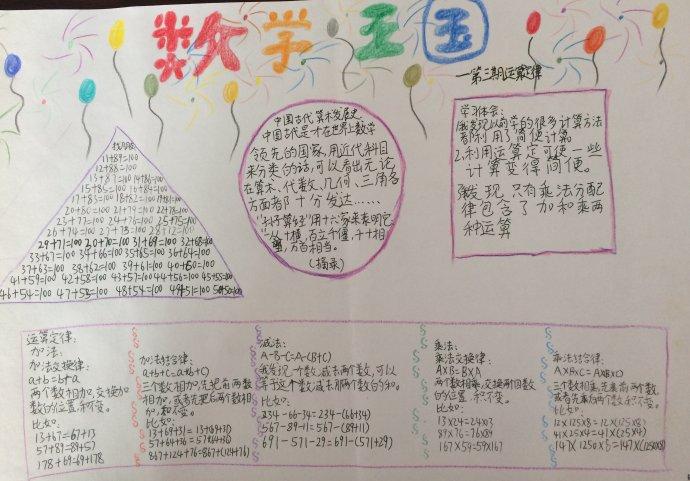 数学王国
—第三期运算定律
11+89=100
12+88=100
13+87=100 14+86=100
15+85=100 16+84=100
17+83=100 18+82=100
20+80=100 21+79=100 22+78=100
23+77=100 24+76=100 25+75=100
26+74=100 27+73=100 28+72=100
29+71=100 20+70=100 31+69=100 32+68=100
33+67=100 34+66=100 35+65=100 36+64=100
37+63=100 38+62=100 39+61=100 40+60=100
41+59=100 42+58=100 43+57=100 44+56=100 45+55=100
46+54=100 47+53=100 48+54=100 49+51=100 50+50=100
中国古代算术发展史
中国古代是才在世界上数学
领先的国家,用近代科目
来分类的话,可以看出无论
在算术、代数、几何、三角各
方面都十分发达……
"孙子算经"用十六字来表明它,
"一从十横,百立千僵,千十相
望,万百相当。
(摘录)
学习体会:
我发现以前学的很多计算方法
都利用了简便计算
2.利用运算定可使一些
计算变得简便。
我发现,只有乘法分配
律包含了加和乘两
种运算
运算定律:
加法:
加法交换律:
a+b=b+a
两个数相加,交换加
数的位置,和不变。
比如:
13+67=67+13
57+89=89+57
178+69=69+178
加法结合律:
a+b+c=a+(b+c)
三个数相加,先把前两数
相加,或者先把后两个数相
加,和不变。
比如:
13+69+31=13+(69+31)
57+64+36=57+(64+36)
867+124+76=867+(124+76)
减法:
A-B-C=A-(B+C)
我发现一个数,减去两个数,可以
等于这个数减去那两个数的和。
比如:
234-66-34=234-(66+34)
567-89-11=567-(89+11)
691-571-29=691-(571+29)
乘法:
乘法交换律:
A×B=B×A
两个数相乘,交换两个数
的位置,积不变。
比如:
13×24=24×13
89×76=76×89
167×59=59×167
乘法结合律:
A×B×C=A×(B×C)
三个数相乘,先乘前两个数,
或者先乘后两个数积不变。
比如:
12×125×8=12×(125×8)
41×25×4=41×(25×4)
147×1250×8=147×(1250×8)